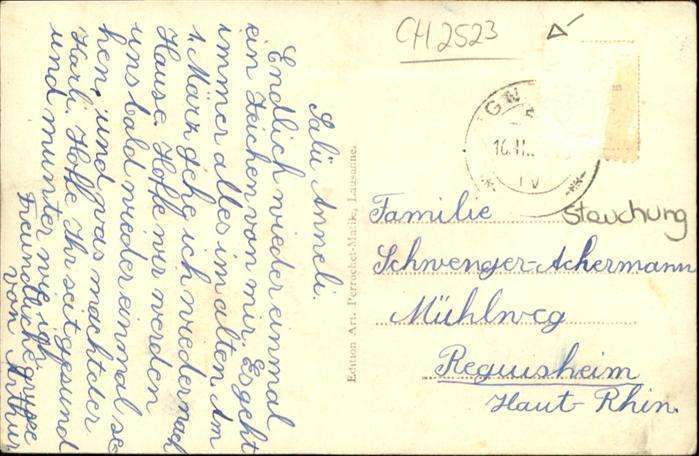 CH 2523
Salü Anneli.
Endlich wieder einmal
ein Zeichen von mir. Es geht
immer alles im alten. Am
1. März gehe ich wieder nach
Hause. Hoffe wir werden
uns bald wieder einmal se
hen, und was macht der
Harli. Hoffe Ihr seit gesund
und munter wie ich.
Freundliche grüsse
von Arthur
Edition Art. Perrochet-Matile, Lausanne.
IV
Stauchung
Familie
Schwenger-Achermann
Mühlweg
Reguisheim
Haut-Rhin.